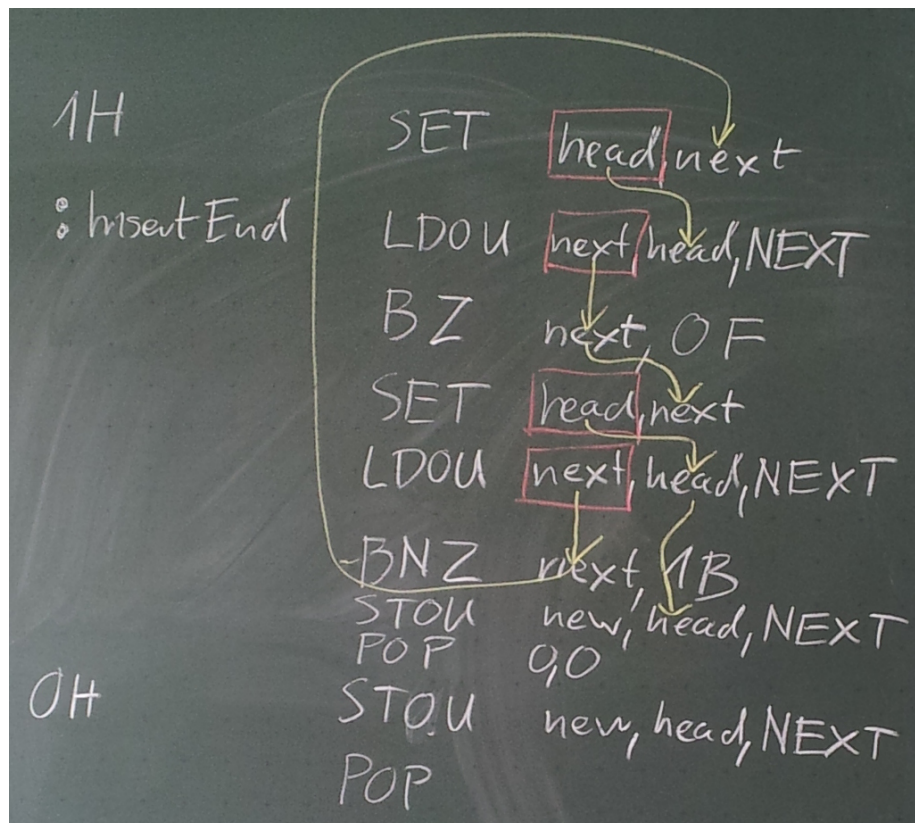 1H SET head,next
:InsertEnd LDOU next,head,NEXT
BZ next,0F
SET head,next
LDOU next,head,NEXT
BNZ next,1B
STOU new,head,NEXT
POP 0,0
0H STOU new,head,NEXT
POP